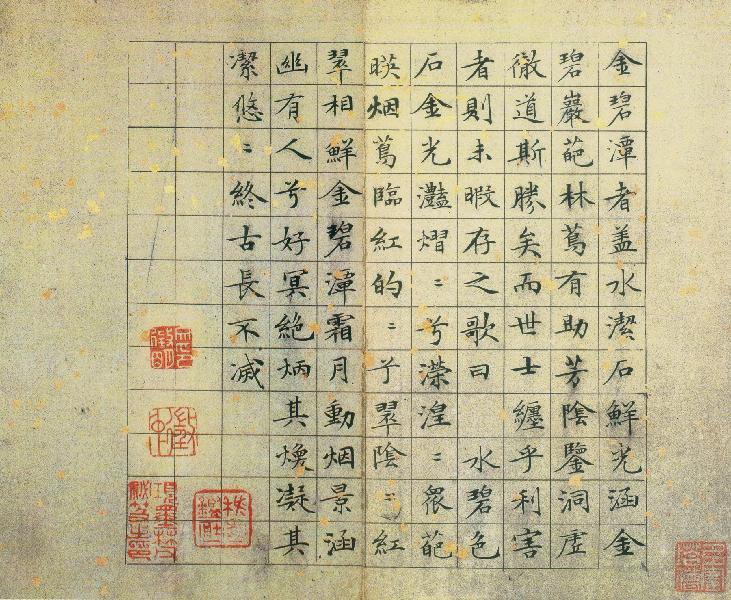 金碧潭者盖水潔石鮮光涵金
碧巖葩林蔦有助芳陰鑒洞虛
徹道斯勝矣而世士纏乎利害
者則未暇存之歌曰 水碧色
石金光灩熠〻兮濴湟〻眾葩
暎烟蔦臨紅的〻兮翠陰〻紅
翠相鮮金碧潭霜月動烟景涵
幽有人兮好冥絶炳其煥凝其
潔悠〻終古長不滅